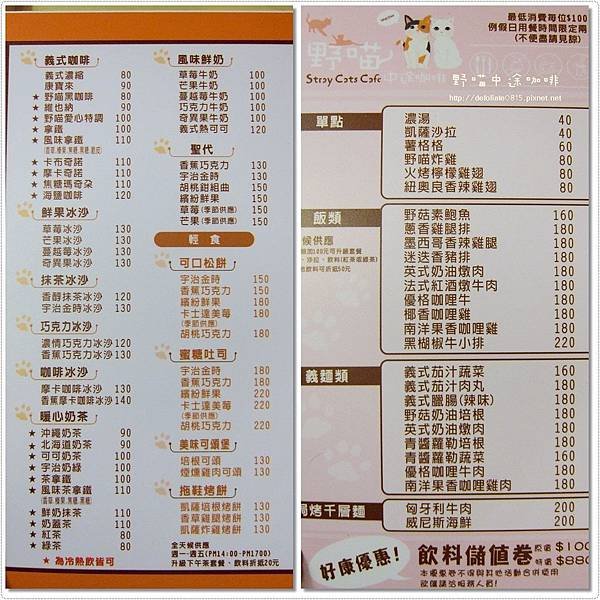 義式咖啡
義式濃縮 80
康寶來 90
★ 野喵黑咖啡 80
★ 維也納 90
★ 野喵愛心特調 100
★ 拿鐵 100
★ 風味拿鐵 110
★ 卡布奇諾 110
★ 摩卡奇諾 110
★ 焦糖瑪奇朵 110
★ 海鹽咖啡 120
鮮果冰沙
草莓冰沙 120
芒果冰沙 120
蔓越莓冰沙 120
奇異果冰沙 120
抹茶冰沙
香醇抹茶冰沙 120
宇治金時冰沙 130
巧克力冰沙
濃情巧克力冰沙 120
香蕉巧克力冰沙 130
咖啡冰沙
摩卡咖啡冰沙 130
香蕉摩卡咖啡冰沙 140
暖心奶茶
★ 沖繩奶茶 90
★ 北海道奶茶 90
★ 可可奶茶 100
★ 宇治奶綠 100
★ 茶拿鐵 100
★ 風味茶拿鐵 110
★ 鮮奶抹茶 110
★ 奶蓋茶 110
★ 紅茶 80
★ 綠茶 80
★ 為冷熱飲皆可
風味鮮奶
草莓牛奶 100
芒果牛奶 100
蔓越莓牛奶 100
巧克力牛奶 100
奇異果牛奶 100
義式熱可可 120
聖代
香蕉巧克力 130
宇治金時 130
胡桃鉗組曲 150
繽紛鮮果 150
草莓(季節供應) 150
芒果(季節供應) 150
輕食
可口松餅
宇治金時 150
香蕉巧克力 150
繽紛鮮果 180
卡士達美莓 180
(季節供應)
胡桃巧克力 180
蜜糖吐司
宇治金時 180
香蕉巧克力 180
繽紛鮮果 220
卡士達美莓 220
(季節供應)
胡桃巧克力 220
美味可頌堡
培根可頌 130
煙燻雞肉可頌 130
拖鞋烤餅
凱薩培根烤餅 130
香草雞腿烤餅 130
凱薩炸雞烤餅 130
全天候供應
週一-週五(PM14:00-PM1700)
升級下午茶套餐、飲料折抵20元
最低消費每位$100
例假日用餐時間限定兩
(不便盡請見諒)
野喵中途咖啡
Stray Cats Cafe
野喵中途咖啡
http://defoliate0815.pixnet.net
單點
濃湯 40
凱薩沙拉 40
薯格格 60
野喵炸雞 80
火烤檸檬雞翅 80
紐奧良香辣雞翅 80
飯類
野菇素鮑魚 160
蔥香雞腿排 180
墨西哥香辣雞腿 180
迷迭香豬排 180
英式奶油燉肉 180
法式紅酒燉牛肉 180
優格咖哩牛 180
椰香咖哩雞 180
南洋果香咖哩雞 180
黑胡椒牛小排 220
候供應
加100元可升級套餐
、沙拉、飲料(紅茶或綠茶)
飲料可折抵50元
義麵類
義式茄汁蔬菜 160
義式茄汁肉丸 180
義式臘腸(辣味) 180
野菇奶油培根 180
英式奶油燉肉 180
青醬蘿勒培根 180
青醬蘿勒蔬菜 160
優格咖哩牛肉 180
南洋果香咖哩雞 180
焗烤千層麵
匈牙利牛肉 200
威尼斯海鮮 200
好康優惠!
飲料儲值卷
原價 $100
特價 $880
本優惠卷不得與其他活動合併使用
欲使請洽服務人員!